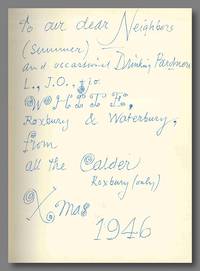 To our dear Neighbors
(summer)
and occasional Drinking Pardners
L., J.O., 
Roxbury & Waterbury,
from
all the Calder
Roxbury (only)
Xmas
1946